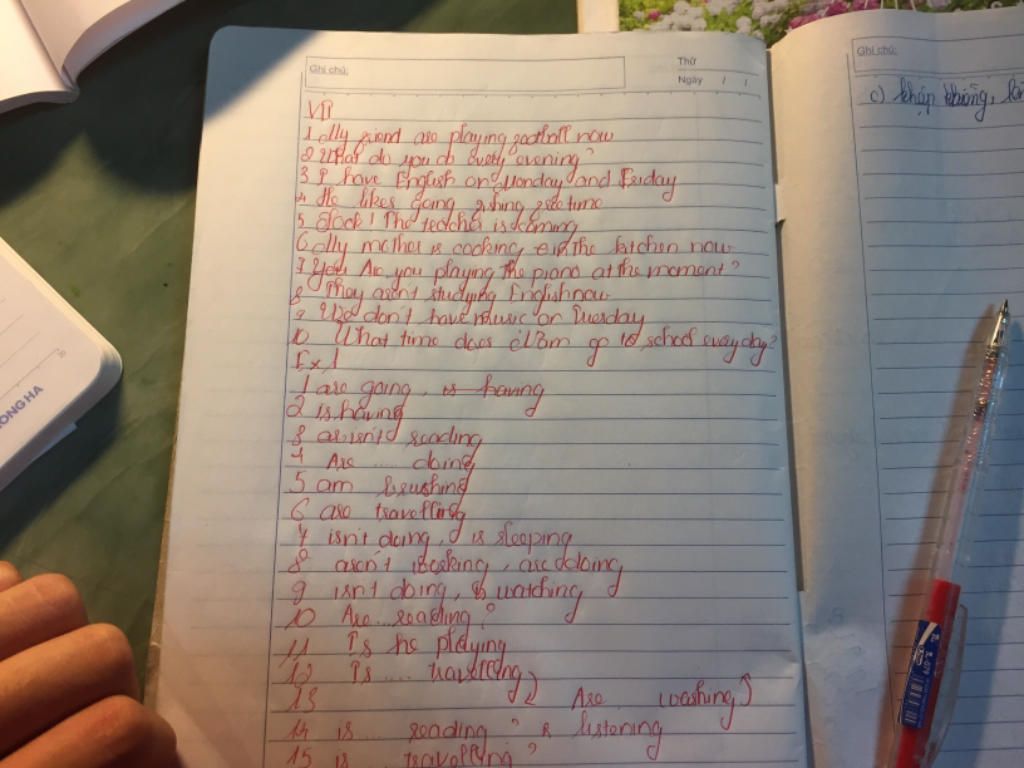 Ghi chú:
Thứ
Ngày / /
VII
1 My friend are playing football now
2 What do you do every evening?
3 I have English on Monday and Friday
4 He likes going fishing free time
5 Look! The teacher is coming
6 My mother is cooking in the kitchen now
7 You Are you playing the piano at the moment?
8 They aren't studying English now
9 We don't have music on Tuesday
10 What time does go to school every day?
Ex 1
1 are going, is having
2 is having
3 isn't reading
4 Are .... doing
5 am brushing
6 are travelling
7 isn't doing, is sleeping
8 aren't, are doing
9 isn't doing, is watching
10 Are... reading?
11 Is he playing
12 Is .... travelling
13 Are washing
14 is ... reading? listening
15 is ... travelling?
Ghi chú:
c) khớp không,
ONG HA